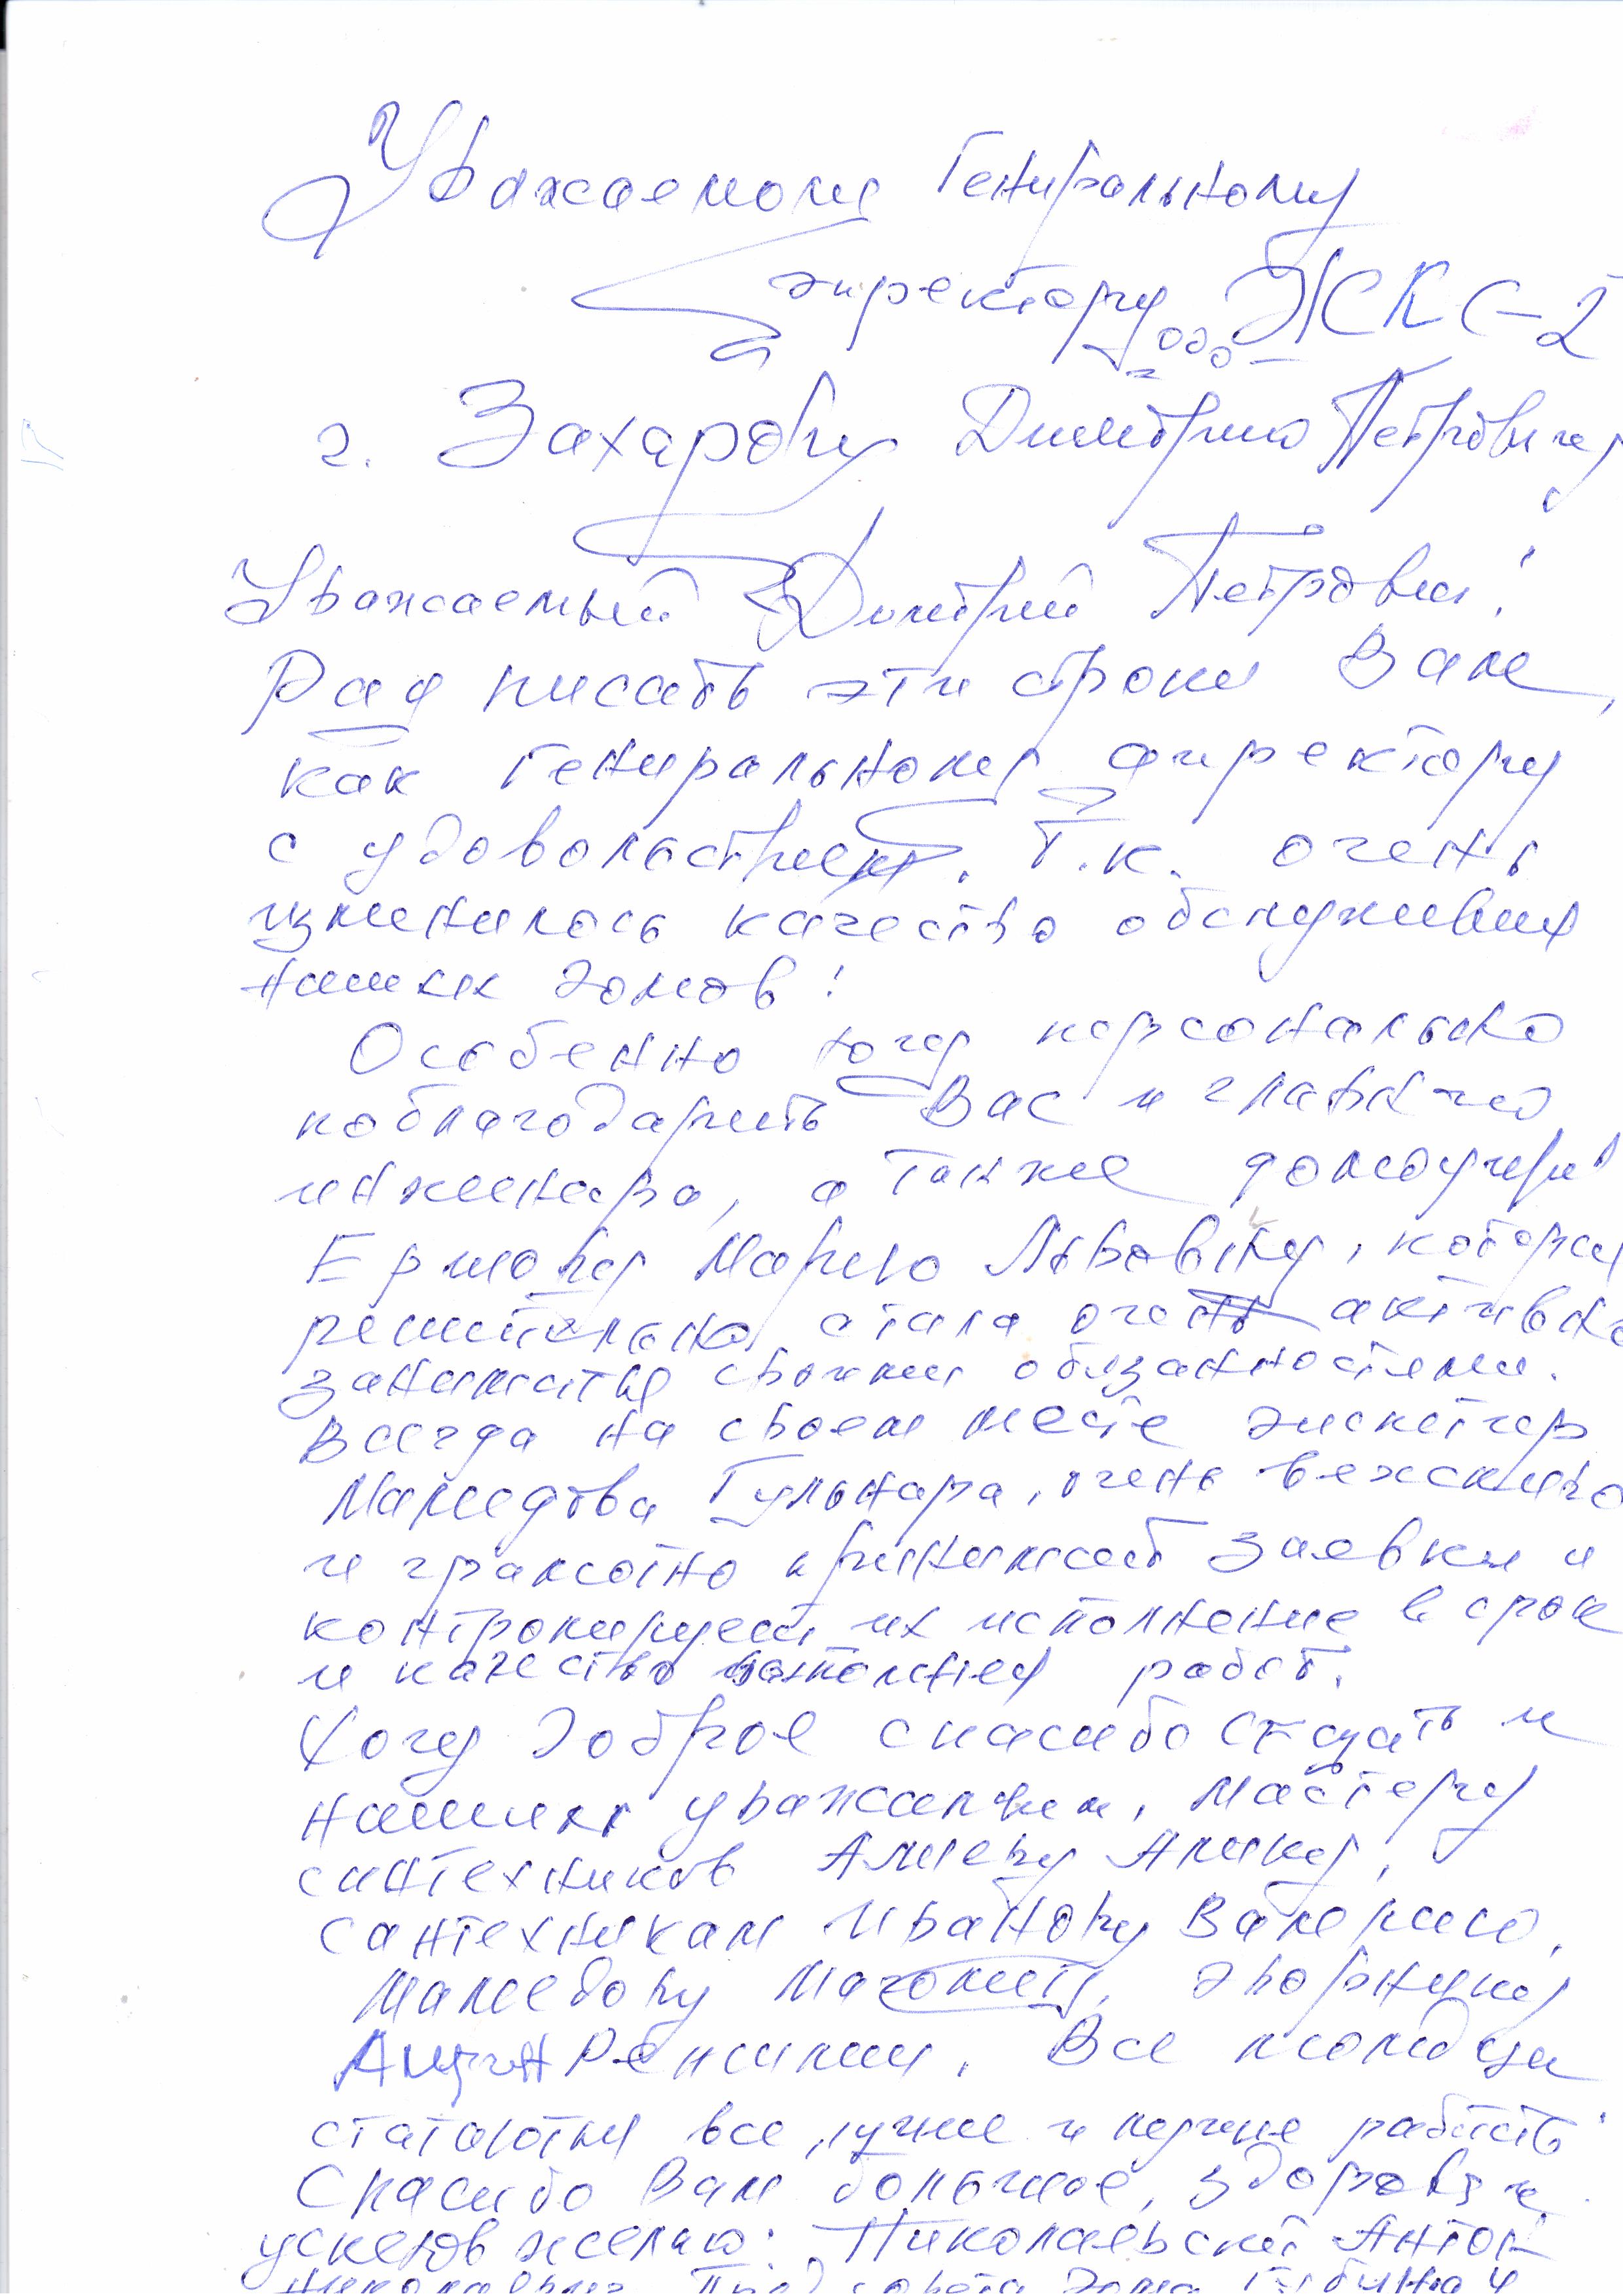 Уважаемому Генеральному
директору ООО ЖСКС-2
г. Захарову Дмитрию Петровичу
Уважаемый Дмитрий Петрович!
Рад писать эти строки Вам,
как Генеральному директору
с удовольствием, т.к. очень
изменилось качество обслуживания
наших домов!
Особенно хочу персонально
поблагодарить Вас и главного
инженера, а также
Марию Львовну, которая
решительно стала очень активно
заниматься своими обязанностями.
Всегда на своем месте диспетчер
Мамедова Гульнара, очень вежливо
и грамотно принимает заявки и
контролирует их исполнение в срок
и качество работ.
Хочу доброе спасибо сказать и
нашим уважаемым, мастеру
сантехников Алиеву
сантехникам Иванову Валерию,
Мамедову Магомету, дворнику
Все молодцы
стараются все лучше и лучше работать
Спасибо Вам большое, здоровья и
успехов желаю: Николаевский Антон